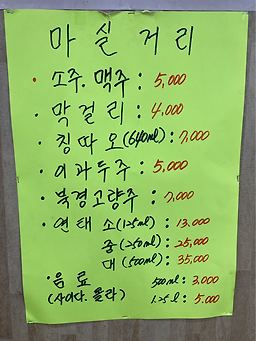 마실거리
• 소주. 맥주 : 5,000
• 막걸리 : 4,000
• 칭따오(640ml) : 7,000
• 이과두주 : 5,000
• 북경고량주 : 7,000
• 연태 소(125ml) : 13,000
중(250ml) : 25,000
대(500ml) : 35,000
• 음료 500ml : 3,000
(사이다. 콜라) 1.25l : 5,000